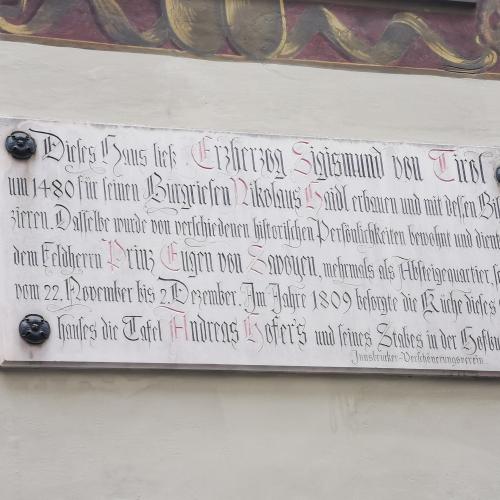 Dieses Haus ließ Erzherzog Sigismund von Tirol
um 1480 für seinen Burgriesen Nikolaus Haidl erbauen und mit dessen Bil
zieren. Dasselbe wurde von verschiedenen historischen Persönlichkeiten bewohnt und dien
dem Feldherrn Prinz Eugen von Savoyen, mehrmals als Absteigequartier, so
vom 22. November bis 2. Dezember. Im Jahre 1809 besorgte die Küche dieses
hauses die Tafel Andreas Hofer's und seines Stabes in der Hofbu
Innsbrucker-Verschönerungsverein